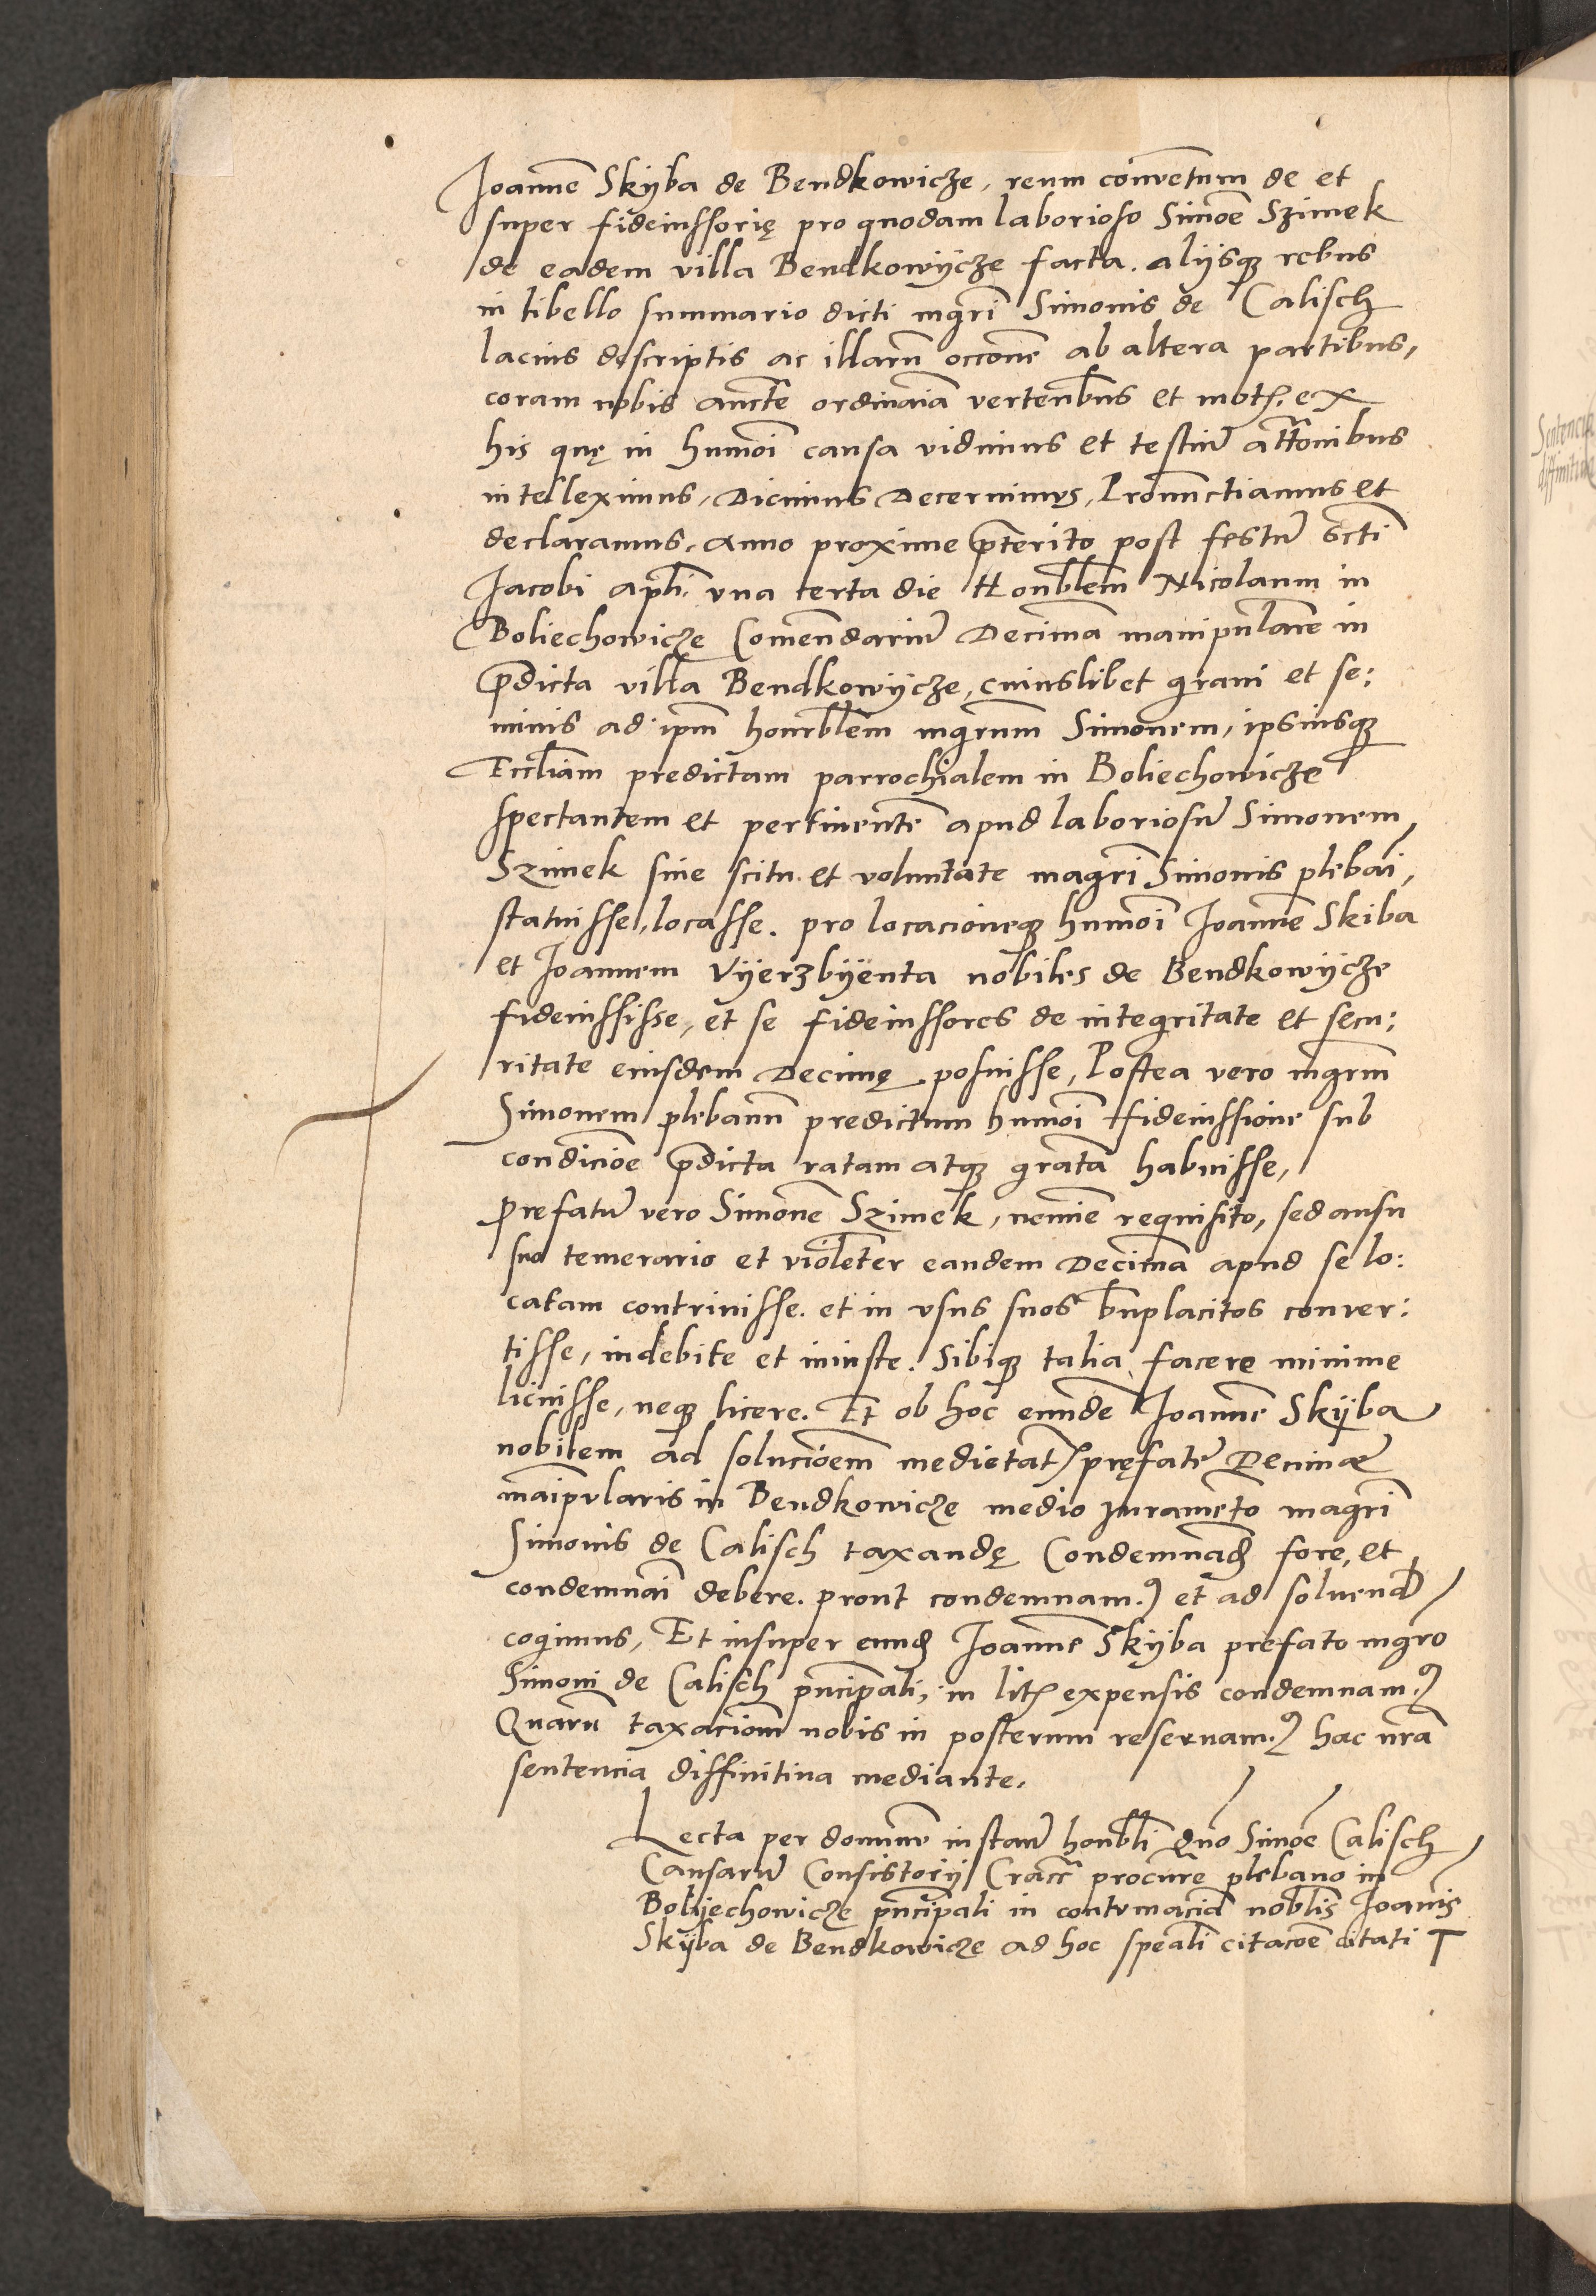 Joannē Skyba de Bendkowicze, reum conventum de et
super fideiussorię pro quodam laborioso Simoē Szimek
de eadem villa Bendkowÿcze facta. alÿsqȝ rebus
in libello summario dicti mgrī Simonis de Calisch
lacius descriptis ac illarū occōne ab altera partibus,
coram nobis aucte ordinaīa vertenbus et motꝭ. ex
his quę in huiuōi causa vidimus et testiū attōnibus
intelleximus, Dicimus Decernimus, Pronunctiamus et
declaramus, anno proxime p̄terito post festū scti
Jacobi apli. vna certa die Honblem Nicolaum in
Boliechowicze Comendariū Decimā manipularē in
p̄dicta villa Bendkowÿcze, cuiuslibet grani et se:
minis ad ipm̄ honrblem mgrum Simonem, ipsiusqȝ
Eccliam predictam parrochialem in Boliechowicze
spectantem et pertinentē apud laboriosū Simonem
Szimek sine scitu et voluntate magrī Simonis plebāi,
statuisse, locasse. pro locacioneqȝ huiuōi Joannē Skiba
et Joannem Vÿerzbÿenta nobiles de Bendkowÿcze
fideiussisse, et se fideiussores de integritate et secu:
ritate eiusdem Decimę posuisse, Postea vero mgrm
Simonem plebanū predictum huiuōi fideiussionē sub
condicōe p̄dicta ratam atqȝ gratā habuisse,
Prefatū vero Simonē Szimek, neminē requisito, sed ausu
suo temerario et violēter eandem Decimā apud se lo:
catam contrivisse. et in vsus suos bnplacitos conver:
tisse, indebite et iniuste. Sibiqȝ talia facere minime
licuisse, neqȝ licere. Et ob hoc eundē Joannē Skÿba
nobilem ad solucioēm medietatꝭ pręfatę Decimæ
māipularis in Bendkowicze medio Juramēto magrī
Simonis de Calisch taxandę Condemnaḋ fore, et
condemnāi debere. prout condemnam.ꝰ et ad soluend
cogimus, Et insuper eunḋ Joannē Skÿba prefato mgro
Simoni de Calisch prīcipali, in litꝭ expensis condemnam.ꝰ
Quarū taxaciōm nobis in posterum reseruam.ꝰ hac nrā
sentencia diffinitiua mediante.
Lecta per dominū instan̄ honbli dno Simōe Calisch
Causarū Consistorÿ Cracc procur̄e plebano in
Bolÿechowicze prīcipali in contumaciā noblīs Joanis
Skÿba de Bendkowicze ad hoc speali citacōe citati T
Sentencia
diffinitiua